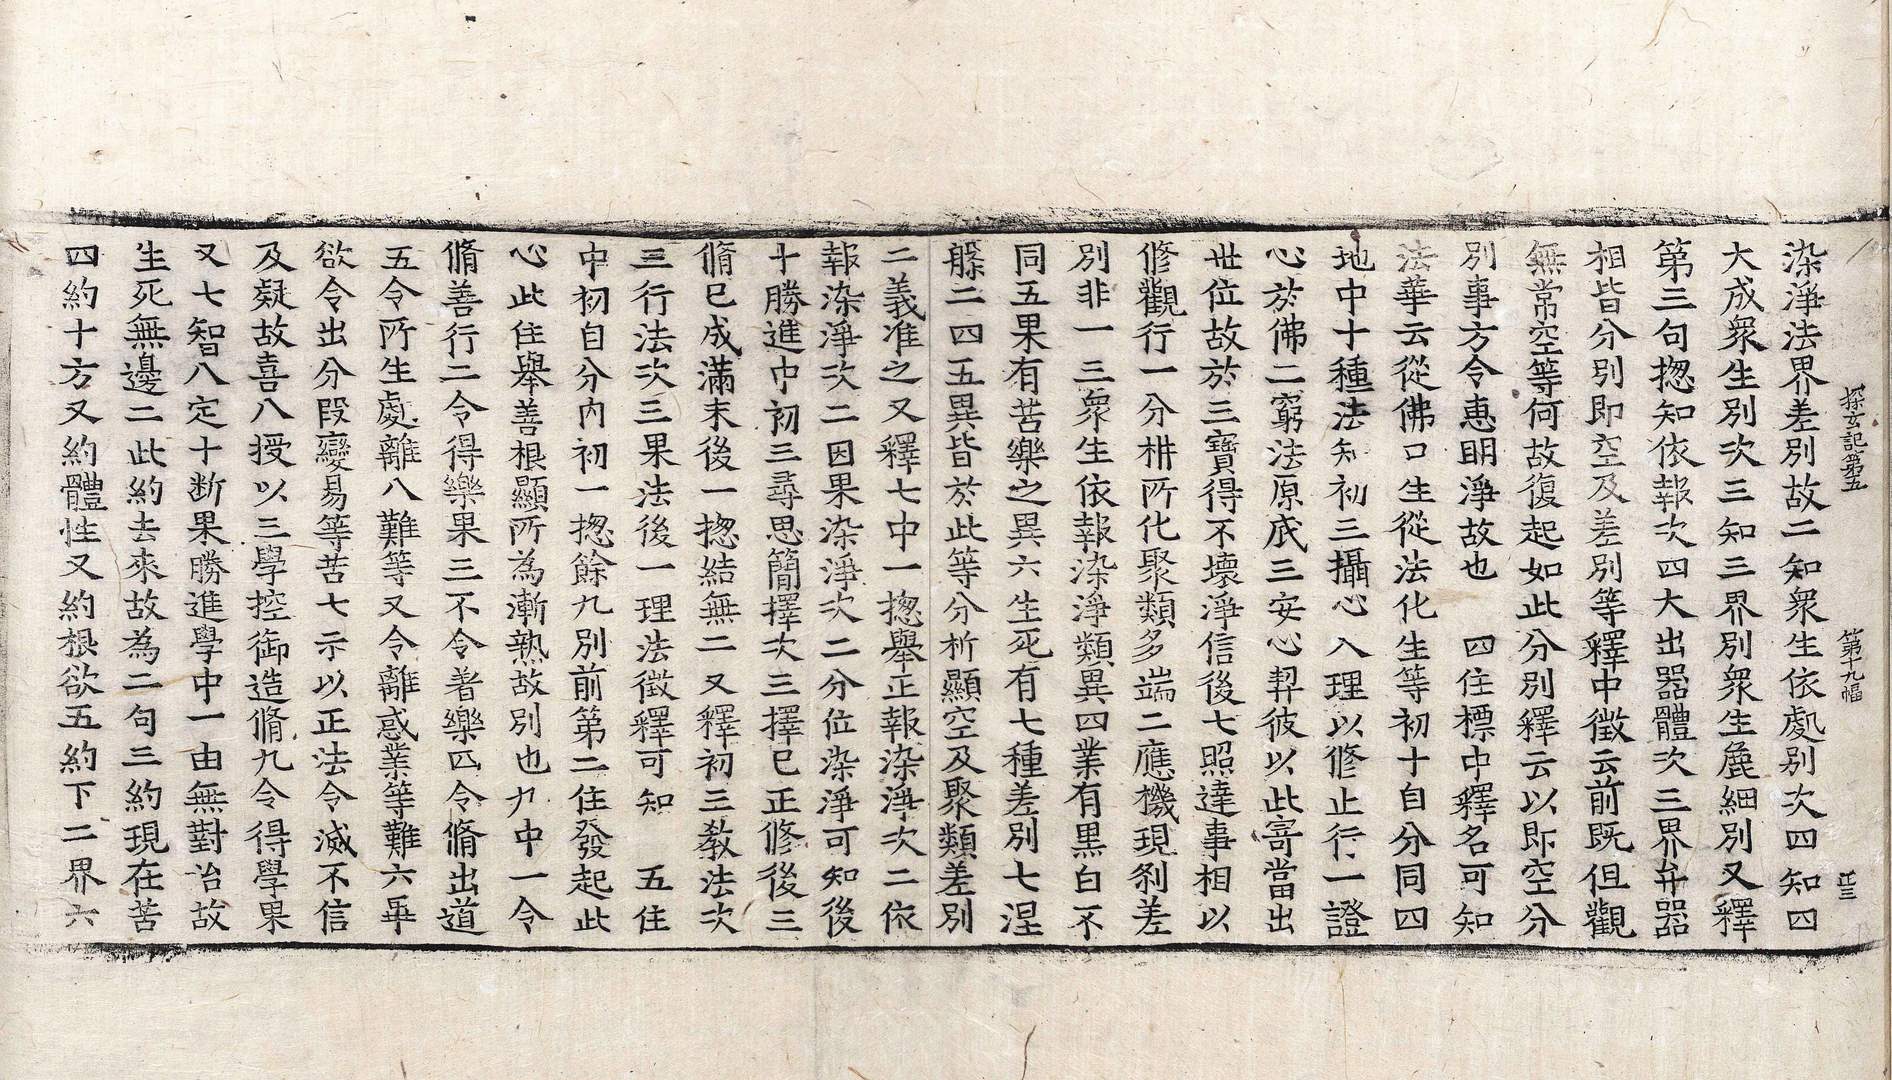 探玄記第五 第十九幅
染淨法界差別故二知衆生依處別次四知四
大成衆生別次三知三界別衆生麁細別又釋
第三句揔知依報次四大出器體次三界弁器
相皆分別即空及差別等釋中徵云前既但觀
無常空等何故復起如此分別釋云以即空分
別事方令惠明淨故也 四住標中釋名可知
法華云從佛口生從法化生等初十自分同四
地中十種法知初三攝心入理以修止行一證
心於佛二窮法原底三安心契彼以此寄當出
世位故於三寶得不壞淨信後七照達事相以
修觀行一分枿所化聚類多端二應機現刹差
別非一三衆生依報染淨類異四業有黒白不
同五果有苦樂之異六生死有七種差別七涅
槃二四五異皆於此等分析顯空及聚類差別
二義准之又釋七中一揔舉正報染淨次二依
報染淨次二因果染淨次二分位染淨可知後
十勝進中初三尋思簡擇次三擇已正修後三
脩已成滿末後一揔結無二又釋初三敎法次
三行法次三果法後一理法徵釋可知 五住
中初自分内初一揔餘九別前第二住發起此
心此住舉善根顯所為漸熟故別也九中一令
脩善行二令得樂果三不令著樂四令脩出道
五令所生處離八難等又令離惑業等難六畢
欲令出分段變易等苦七示以正法令滅不信
及疑故喜八授以三學控御造脩九令得學果
又七智八定十断果勝進學中一由無對治故
生死無邊二此約去來故為二句三約現在苦
四約十方又約體性又約根欲五約下二界六